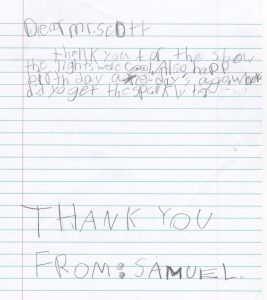 Dear mr.scott
thank you for the show
the lights were cool. Also happy
birth day days ago where
did yo get the sparkly
THANK YOU
FROM: SAMUEL.